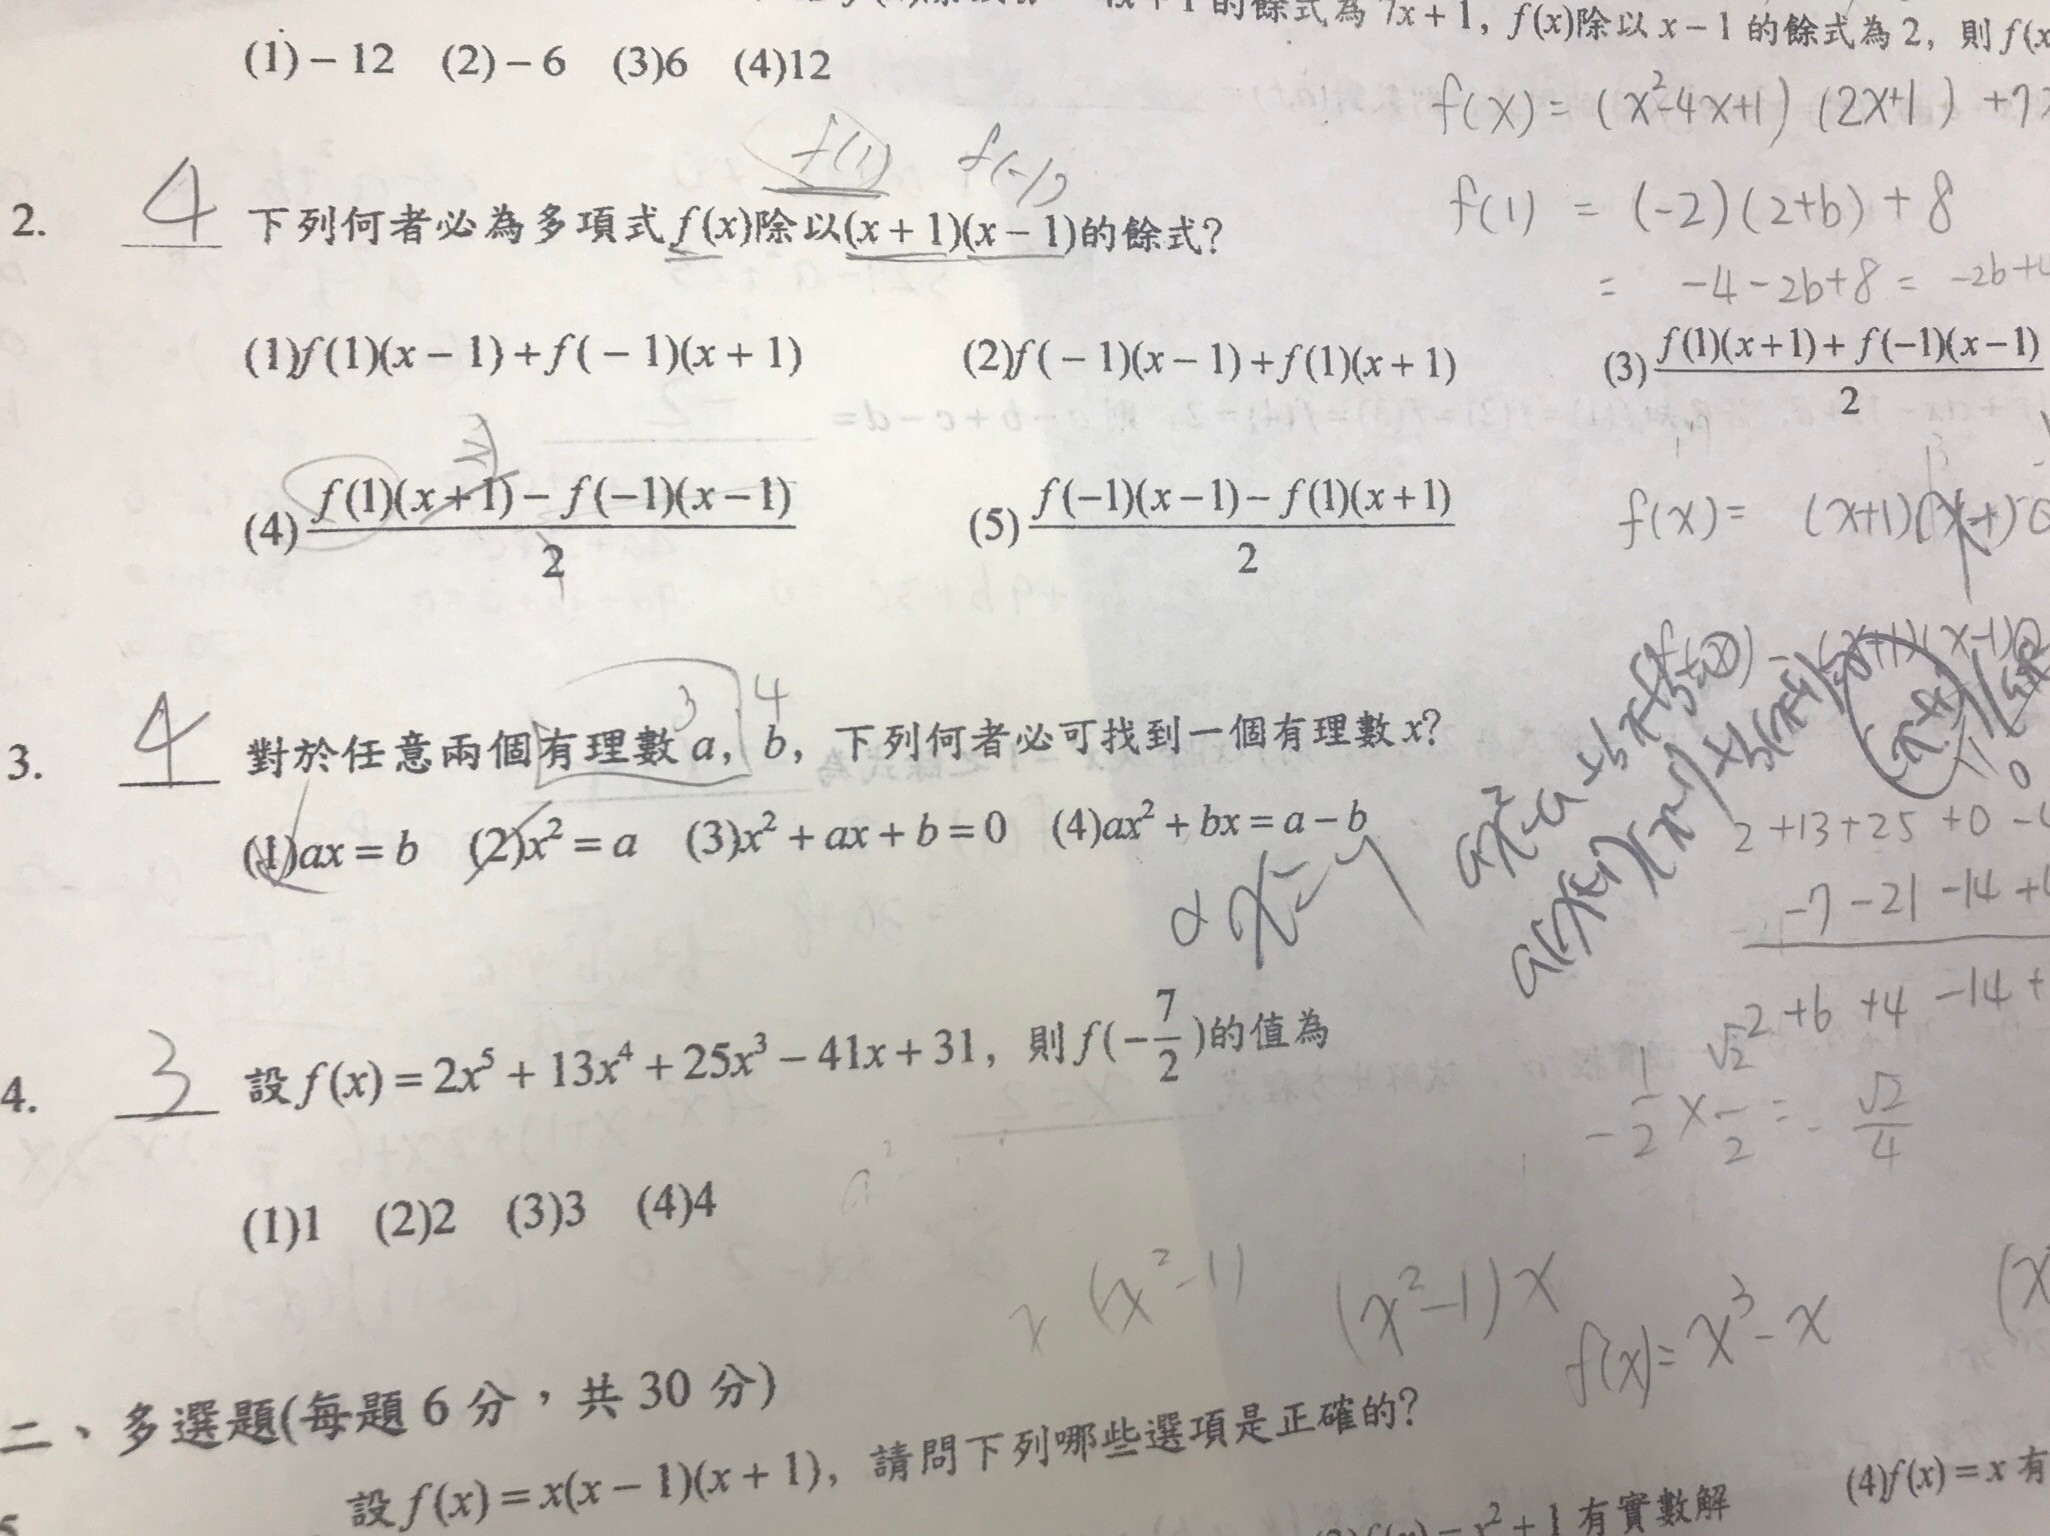 +1的餘式為7x+1, f(x)除以x-1的餘式為2, 則f(x
(1)-12 (2)-6 (3)6 (4)12
f(x) = (x²-4x+1) (2x+1) +7x
f(1) f(-1)
2. 4 下列何者必為多項式f(x)除以(x+1)(x-1)的餘式?
f(1) = (-2)(2+b)+8
= -4-2b+8 = -2b+4
(1)f(1)(x-1)+f(-1)(x+1) (2)f(-1)(x-1)+f(1)(x+1) (3) (f(1)(x+1)+f(-1)(x-1))/2
(4) (f(1)(x+1)-f(-1)(x-1))/2 (5) (f(-1)(x-1)-f(1)(x+1))/2
f(x)= (x+1)
3 4
3. 4 對於任意兩個有理數a, b, 下列何者必可找到一個有理數x?
(1)ax=b (2)x²=a (3)x²+ax+b=0 (4)ax²+bx=a-b
2+13+25+0-4
-7-21-14+
2+6+4-14+
4. 3 設f(x)=2x⁵+13x⁴+25x³-41x+31, 則f(-7/2)的值為
(1)1 (2)2 (3)3 (4)4
x (x²-1) (x²-1)x
f(x)=x³-x
二、多選題(每題6分,共30分)
設f(x)=x(x-1)(x+1), 請問下列哪些選項是正確的?
x²+1有實數解 (4)f(x)=x有